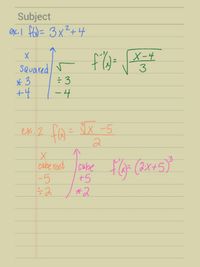 Subject
ex.1 f(x) = 3x²+4
x
squared √
* 3 ÷ 3
+4 - 4
f⁻¹(x) = √((x-4)/3)
ex. 2 f(x) = (∛x - 5)/2
x
cube root cube
-5 +5
÷2 *2
f⁻¹(x) = (2x+5)³